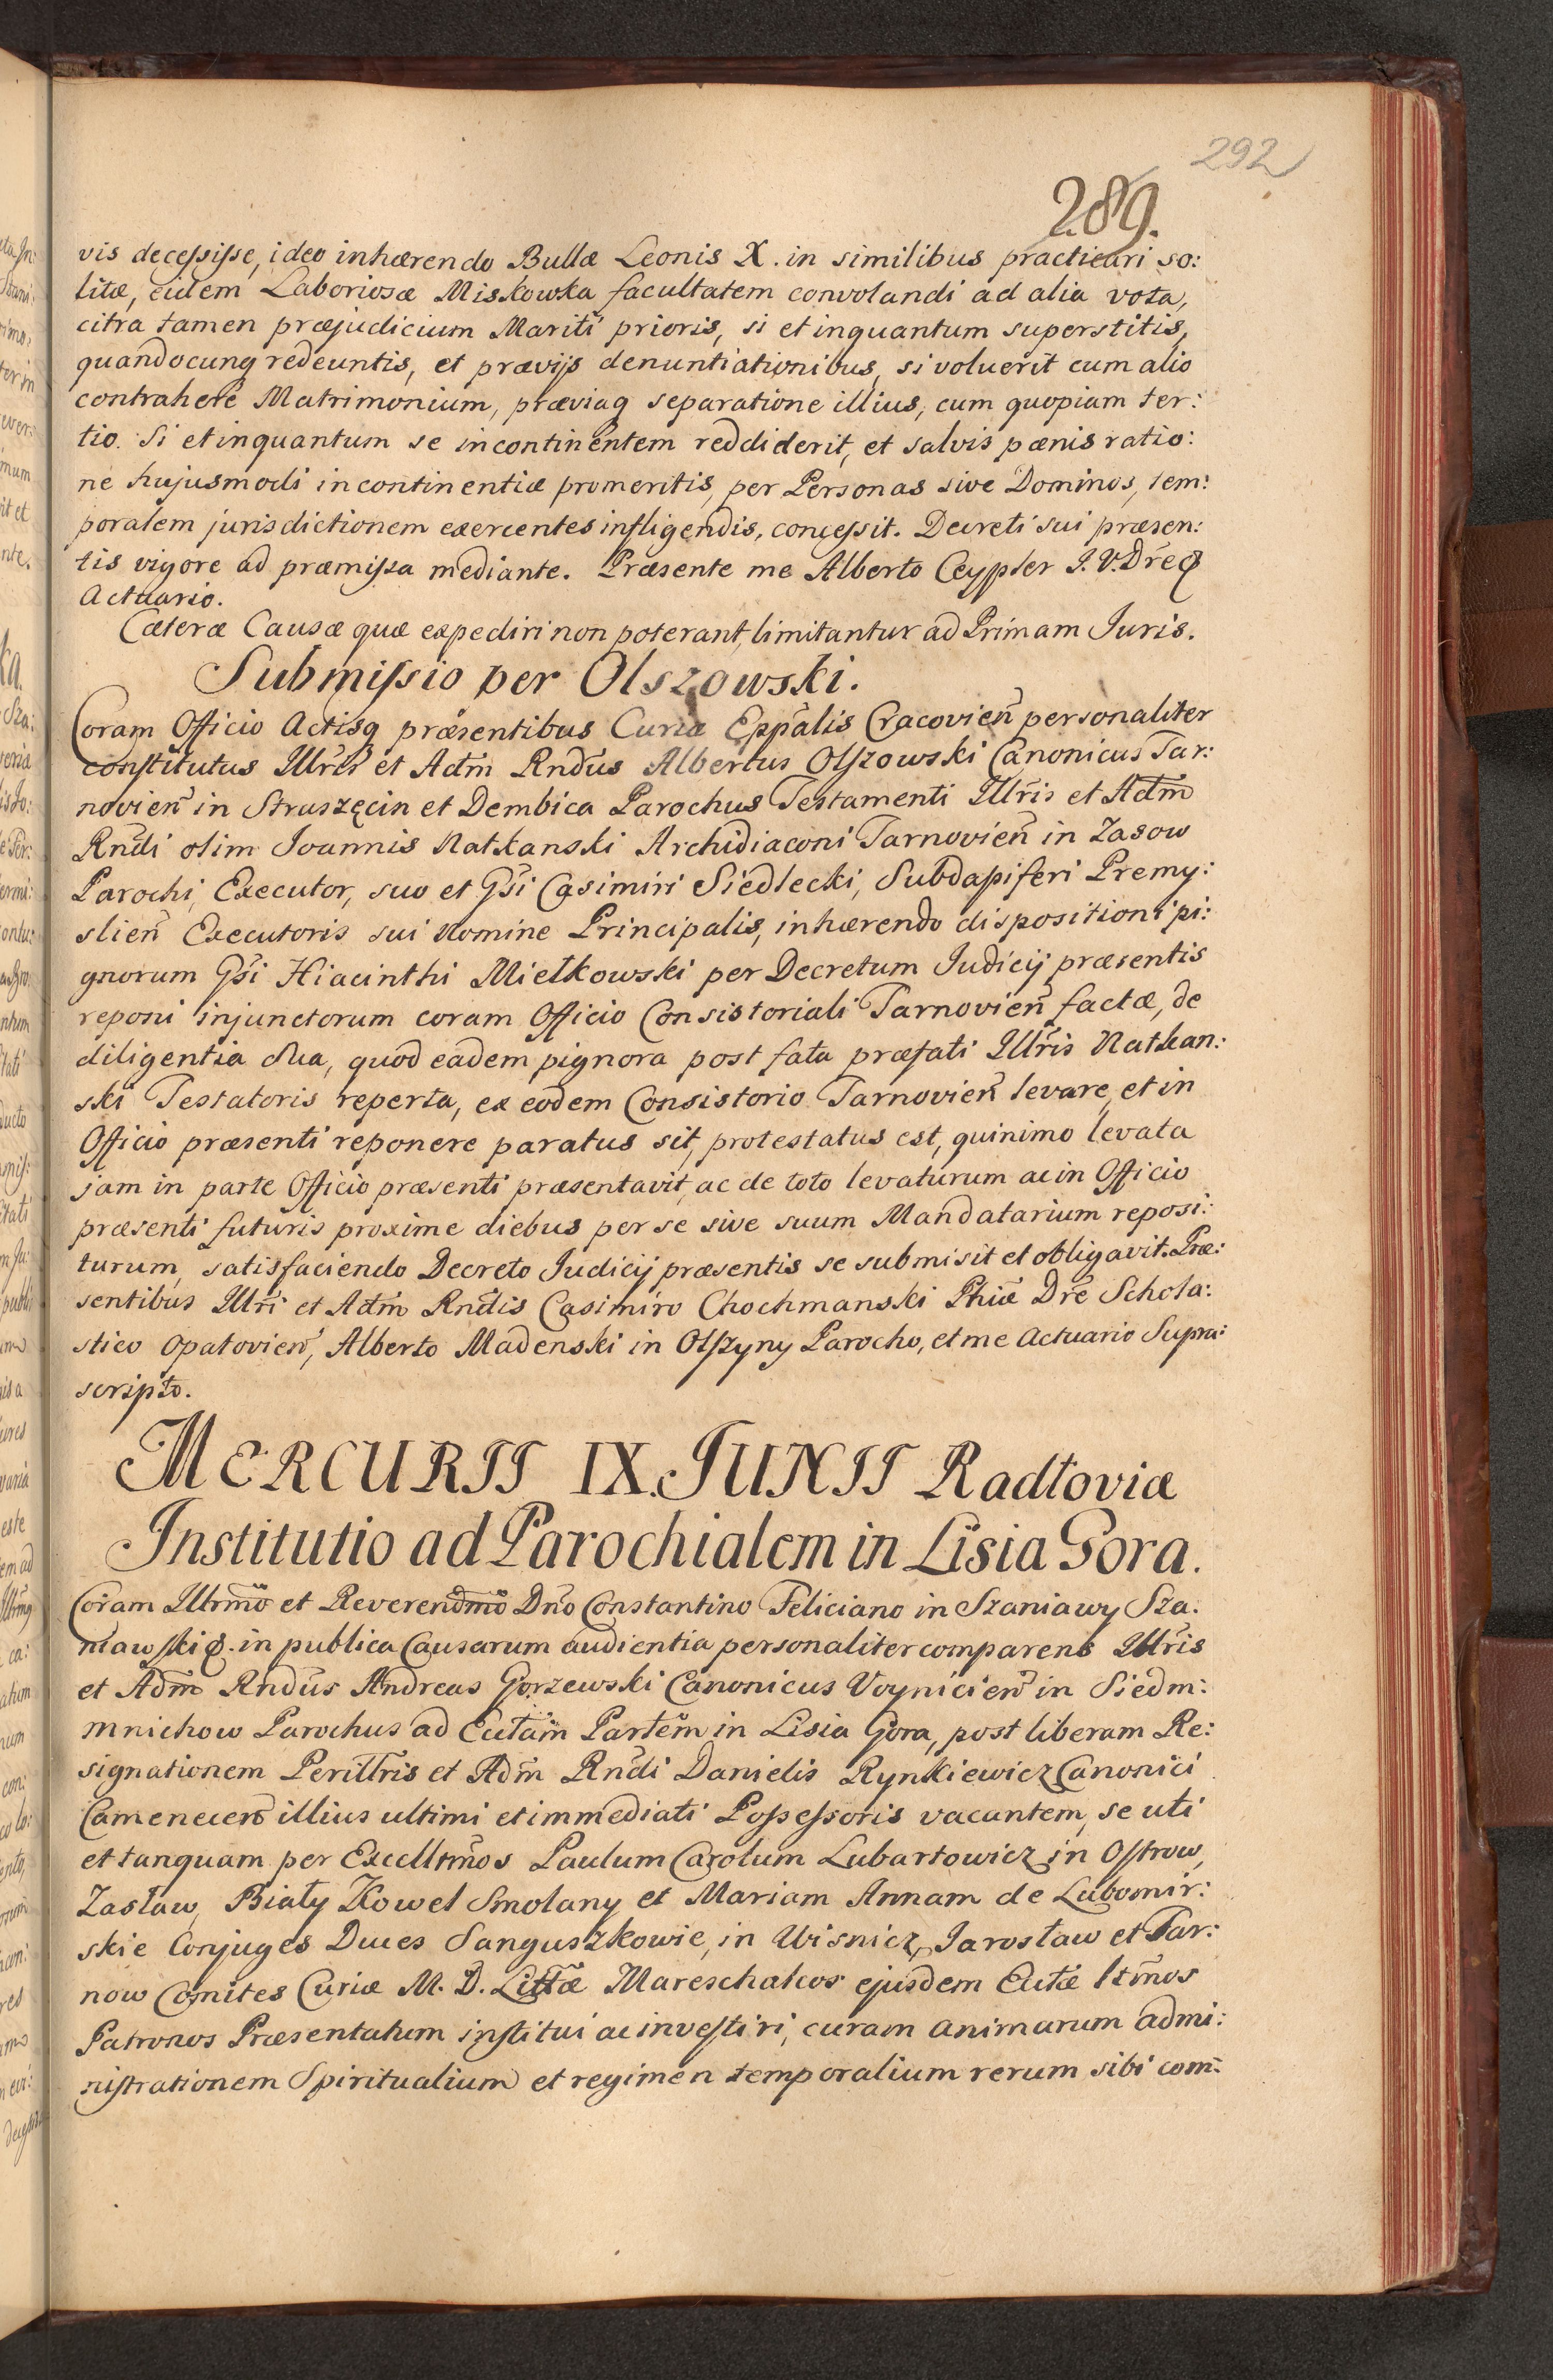 292
289.
vis decessisse, ideo inhærendo Bullæ Leonis X. in similibus practicari so:
litæ, eidem Laboriosæ Miskowka facultatem convolandi ad alia vota,
citra tamen præjudicium Mariti prioris, si et inquantum superstitis,
quandocunq redeuntis, et prævijs denuntiationibus, si voluerit cum alio
contrahere Matrimonium, præviaq separatione illius, cum quopiam ter:
tio. Si et inquantum se incontinentem reddiderit, et salvis pænis ratio:
ne hujusmodi incontinentiæ promeritis, per Personas sive Dominos, tem:
poralem jurisdictionem exercentes infligendis, concessit. Decreti sui præsen:
tis vigore ad præmissa mediante. Præsente me Alberto Ceypler I. V. Dre
Actuario.
Cæteræ Causæ quæ expediri non poterant, limitantur ad Primam Iuris.
Submissio per Olszowski.
Coram Officio Actisq præsentibus Curiæ Eppalis Cracovien personaliter
constitutus Illris et Adm Rndus Albertus Olszowski Canonicus Tar:
novien in Straszęcin et Dembica Parochus Testamenti Illris et Adm
Rndi olim Ioannis Natkanski Archidiaconi Tarnovien in Zasow
Parochi, Executor, suo et Gsi Casimiri Siedlecki, Subdapiferi Premy:
slien Executoris sui Nomine Principalis, inhærendo dispositioni pi:
gnorum Gsi Hiacinthi Miełkowski per Decretum Iudicij præsentis
reponi injunctorum coram Officio Consistoriali Tarnovien factæ, de
diligentia sua, quod eadem pignora post fata præfati Illris Natkan:
ski Testatoris reperta, ex eodem Consistorio Tarnovien levare, et in
Officio præsenti reponere paratus sit, protestatus est, quinimo levata
jam in parte Officio præsenti præsentavit, ac de toto levaturum ac in Officio
præsenti futuris proxime diebus per se sive suum Mandatarium reposi:
turum, satisfaciendo Decreto Iudicij præsentis se submisit et obligavit. Præ:
sentibus Illri et Adm Rndis Casimiro Chochmanski Phiæ Dre Schola:
stico Opatovien, Alberto Madenski in Olszyny Parocho, et me Actuario Supra:
scripto.
MERCURII IX. IUNII Radłoviæ
Institutio ad Parochialem in Lisia Gora.
Coram Illrmo et Reverendmo Dno Constantino Feliciano in Szaniawy Sza.
niawski in publica Causarum audientia personaliter comparens Illris
et Adm Rndus Andreas Gorzewski Canonicus Voynicien in Siedm:
mnichow Parochus ad Ecclam Partem in Lisia Gora, post liberam Re:
signationem Perillris et Adm Rndi Danielis Rynkiewicz Canonici
Camenecen illius ultimi et immediati Possessoris vacantem, se uti
et tanquam per Excellmos Paulum Carolum Lubartowicz in Ostrow,
Zasław, Biały Kowel Smolany et Mariam Annam de Lubomir:
skie Conjuges Duces Sanguszkowie, in Wisnicz, Iarosław et Tar:
now Comites Curiæ M. D. Littæ Mareschalcos ejusdem Ecclæ
Patronos Præsentatum institui ac investiri, curam animarum admi:
nistrationem Spiritualium et regimen temporalium rerum sibi com: